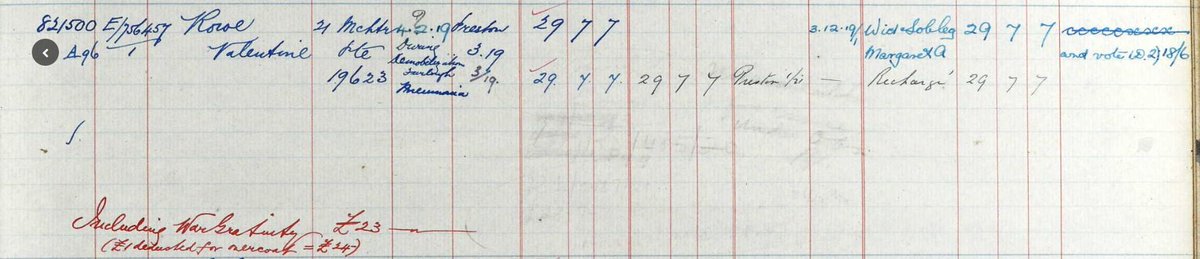 821500 E/756457 Rowe 21 Mchtr 4.2.19 Preston 29 7 7 3.12.19 Wid & Sol leg 29 7 7
A.96 1 Valentine Pte During 3.19 Margaret A and vote (D.2) 18/6
19623 Demobilization Furlough 3/19. 29. 7. 7. 29 7 7 Preston — Recharge 29 7 7
Pneumonia
Including War Gratuity £23 —
(£1 deducted for overcoat = £24)